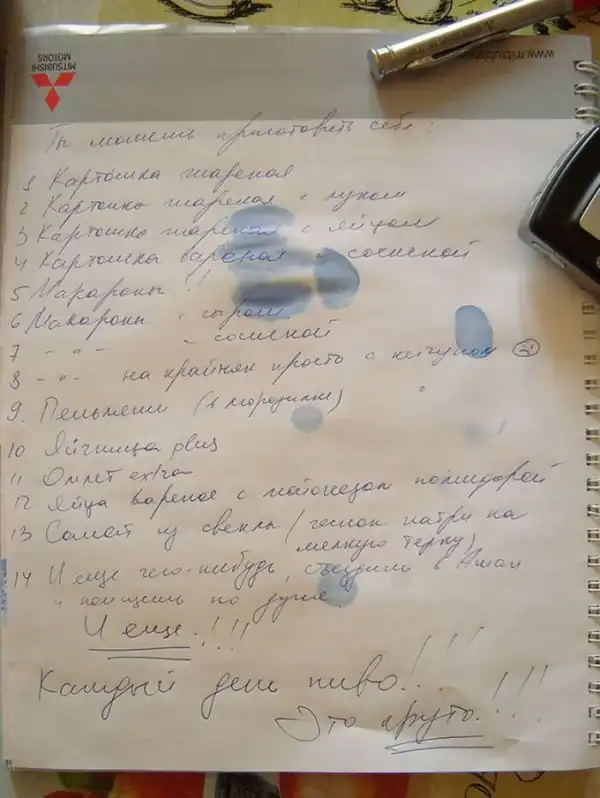 MITSUBISHI
MOTORS
www.mitsubis
Ты можешь приготовить себе:
1 Картошка жареная
2 Картошка жареная с луком
3 Картошка жареная с яйцом
4 Картошка вареная с сосиской
5 Макароны!!
6 Макароны с сыром
7 – " – сосиской
8 – " – на крайняк просто с кетчупом
9. Пельмени (в морозилке)
10 Яичница plus
11 Омлет extra
12 Яйца вареное с майонезом помидорой
13 Салат из свеклы (чеснок натри на
мелкую терку)
14 И еще чего-нибудь, съездишь в Ашан
и поищешь по душе.
И еще!!!
Каждый день пиво!!!
Это круто!!!